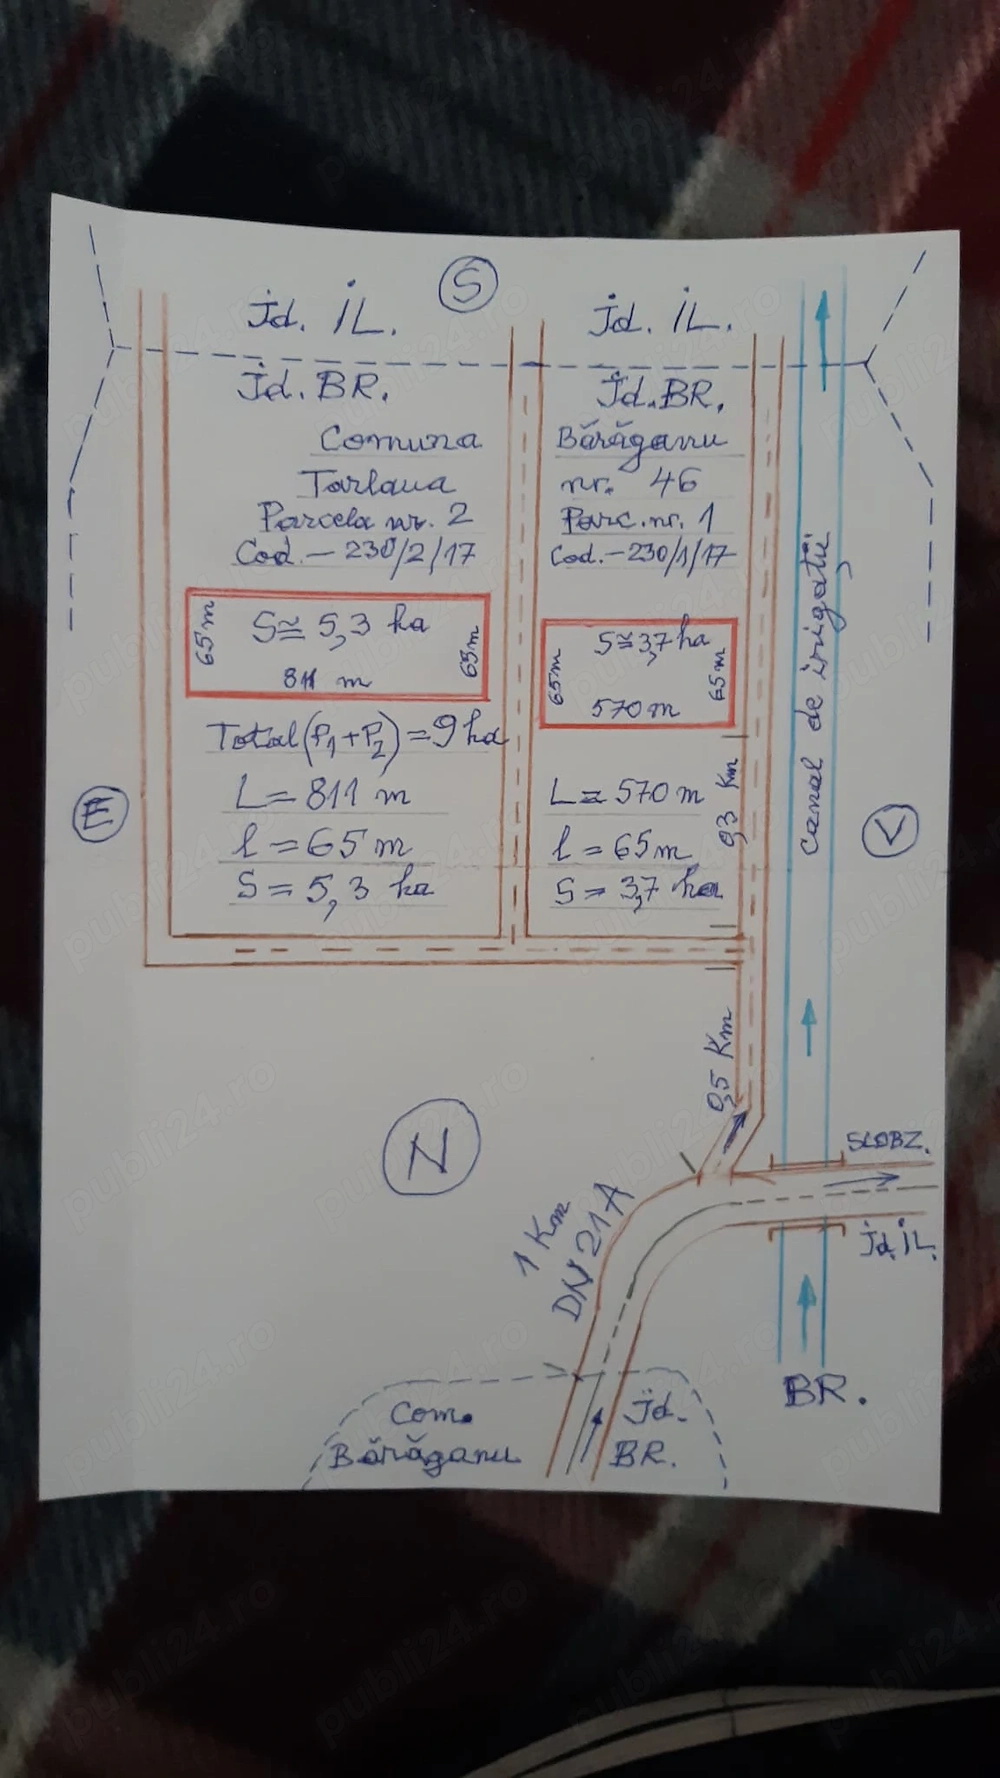 S
Jd. IL.
Jd. IL.
Jd. BR.
Jd. BR.
Comuna
Bărăganu
Tarlaua
nr. 46
Parcela nr. 2
Parc. nr. 1
Cod. - 230/2/17
Cod. - 230/1/17
65 m
S ≅ 5,3 ha
65 m
811 m
65 m
S ≅ 3,7 ha
65 m
570 m
Total (P1 + P2) = 9 ha
L = 811 m
L = 570 m
l = 65 m
l = 65 m
S = 5,3 ha
S = 3,7 ha
E
0,3 Km
Canal de irigații
V
0,5 Km
N
SLOBZ.
Jd. IL.
1 Km
DN 21A
BR.
Com.
Bărăganu
Jd.
BR.
publi24.ro